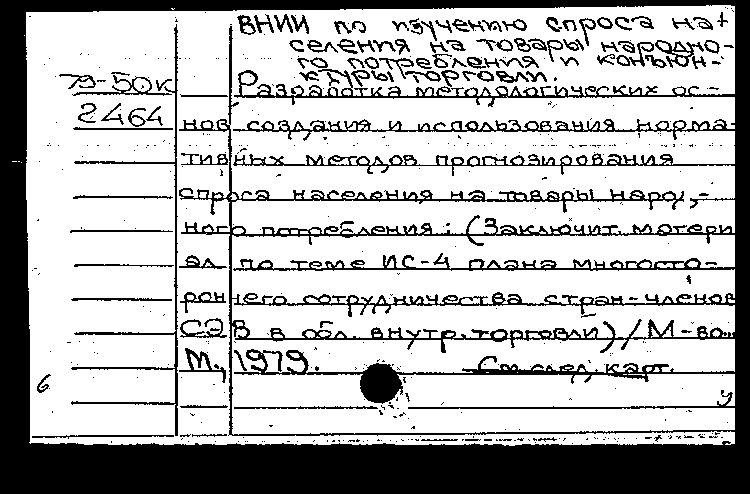 ВНИИ по изучению спроса на-
селения на товары народно-
го потребления и конъюн-
ктуры торговли.
79-50к
2464
Разработка методологических ос-
нов создания и использования норма-
тивных методов прогнозирования
спроса населения на товары народ,-
ного потребления: (Заключит. матери
ал по теме ИС-4 плана многосто-
роннего сотрудничества стран-членов
СЭВ в обл. внутр. торговли) / М-во...
М., 1979.
См. след. карт.
6